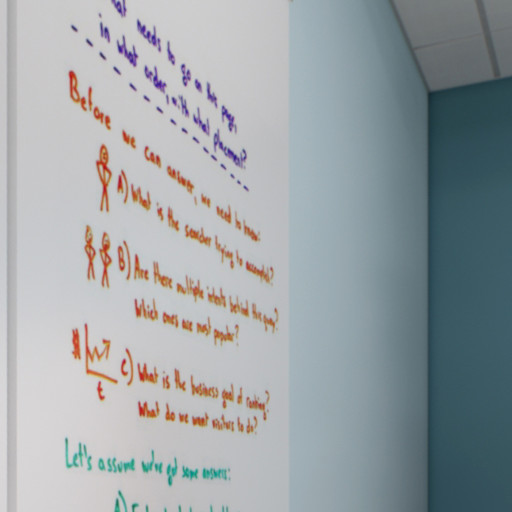 hat needs to go on this page,
in what order, with what placement?
Before we can answer, we need to know:
A) What is the searcher trying to accomplish?
B) Are there multiple intents behind this query?
Which ones are most popular?
$
t
C) What is the business goal of ranking?
What do we want visitors to do?
Let's assume we've got some answers:
A)